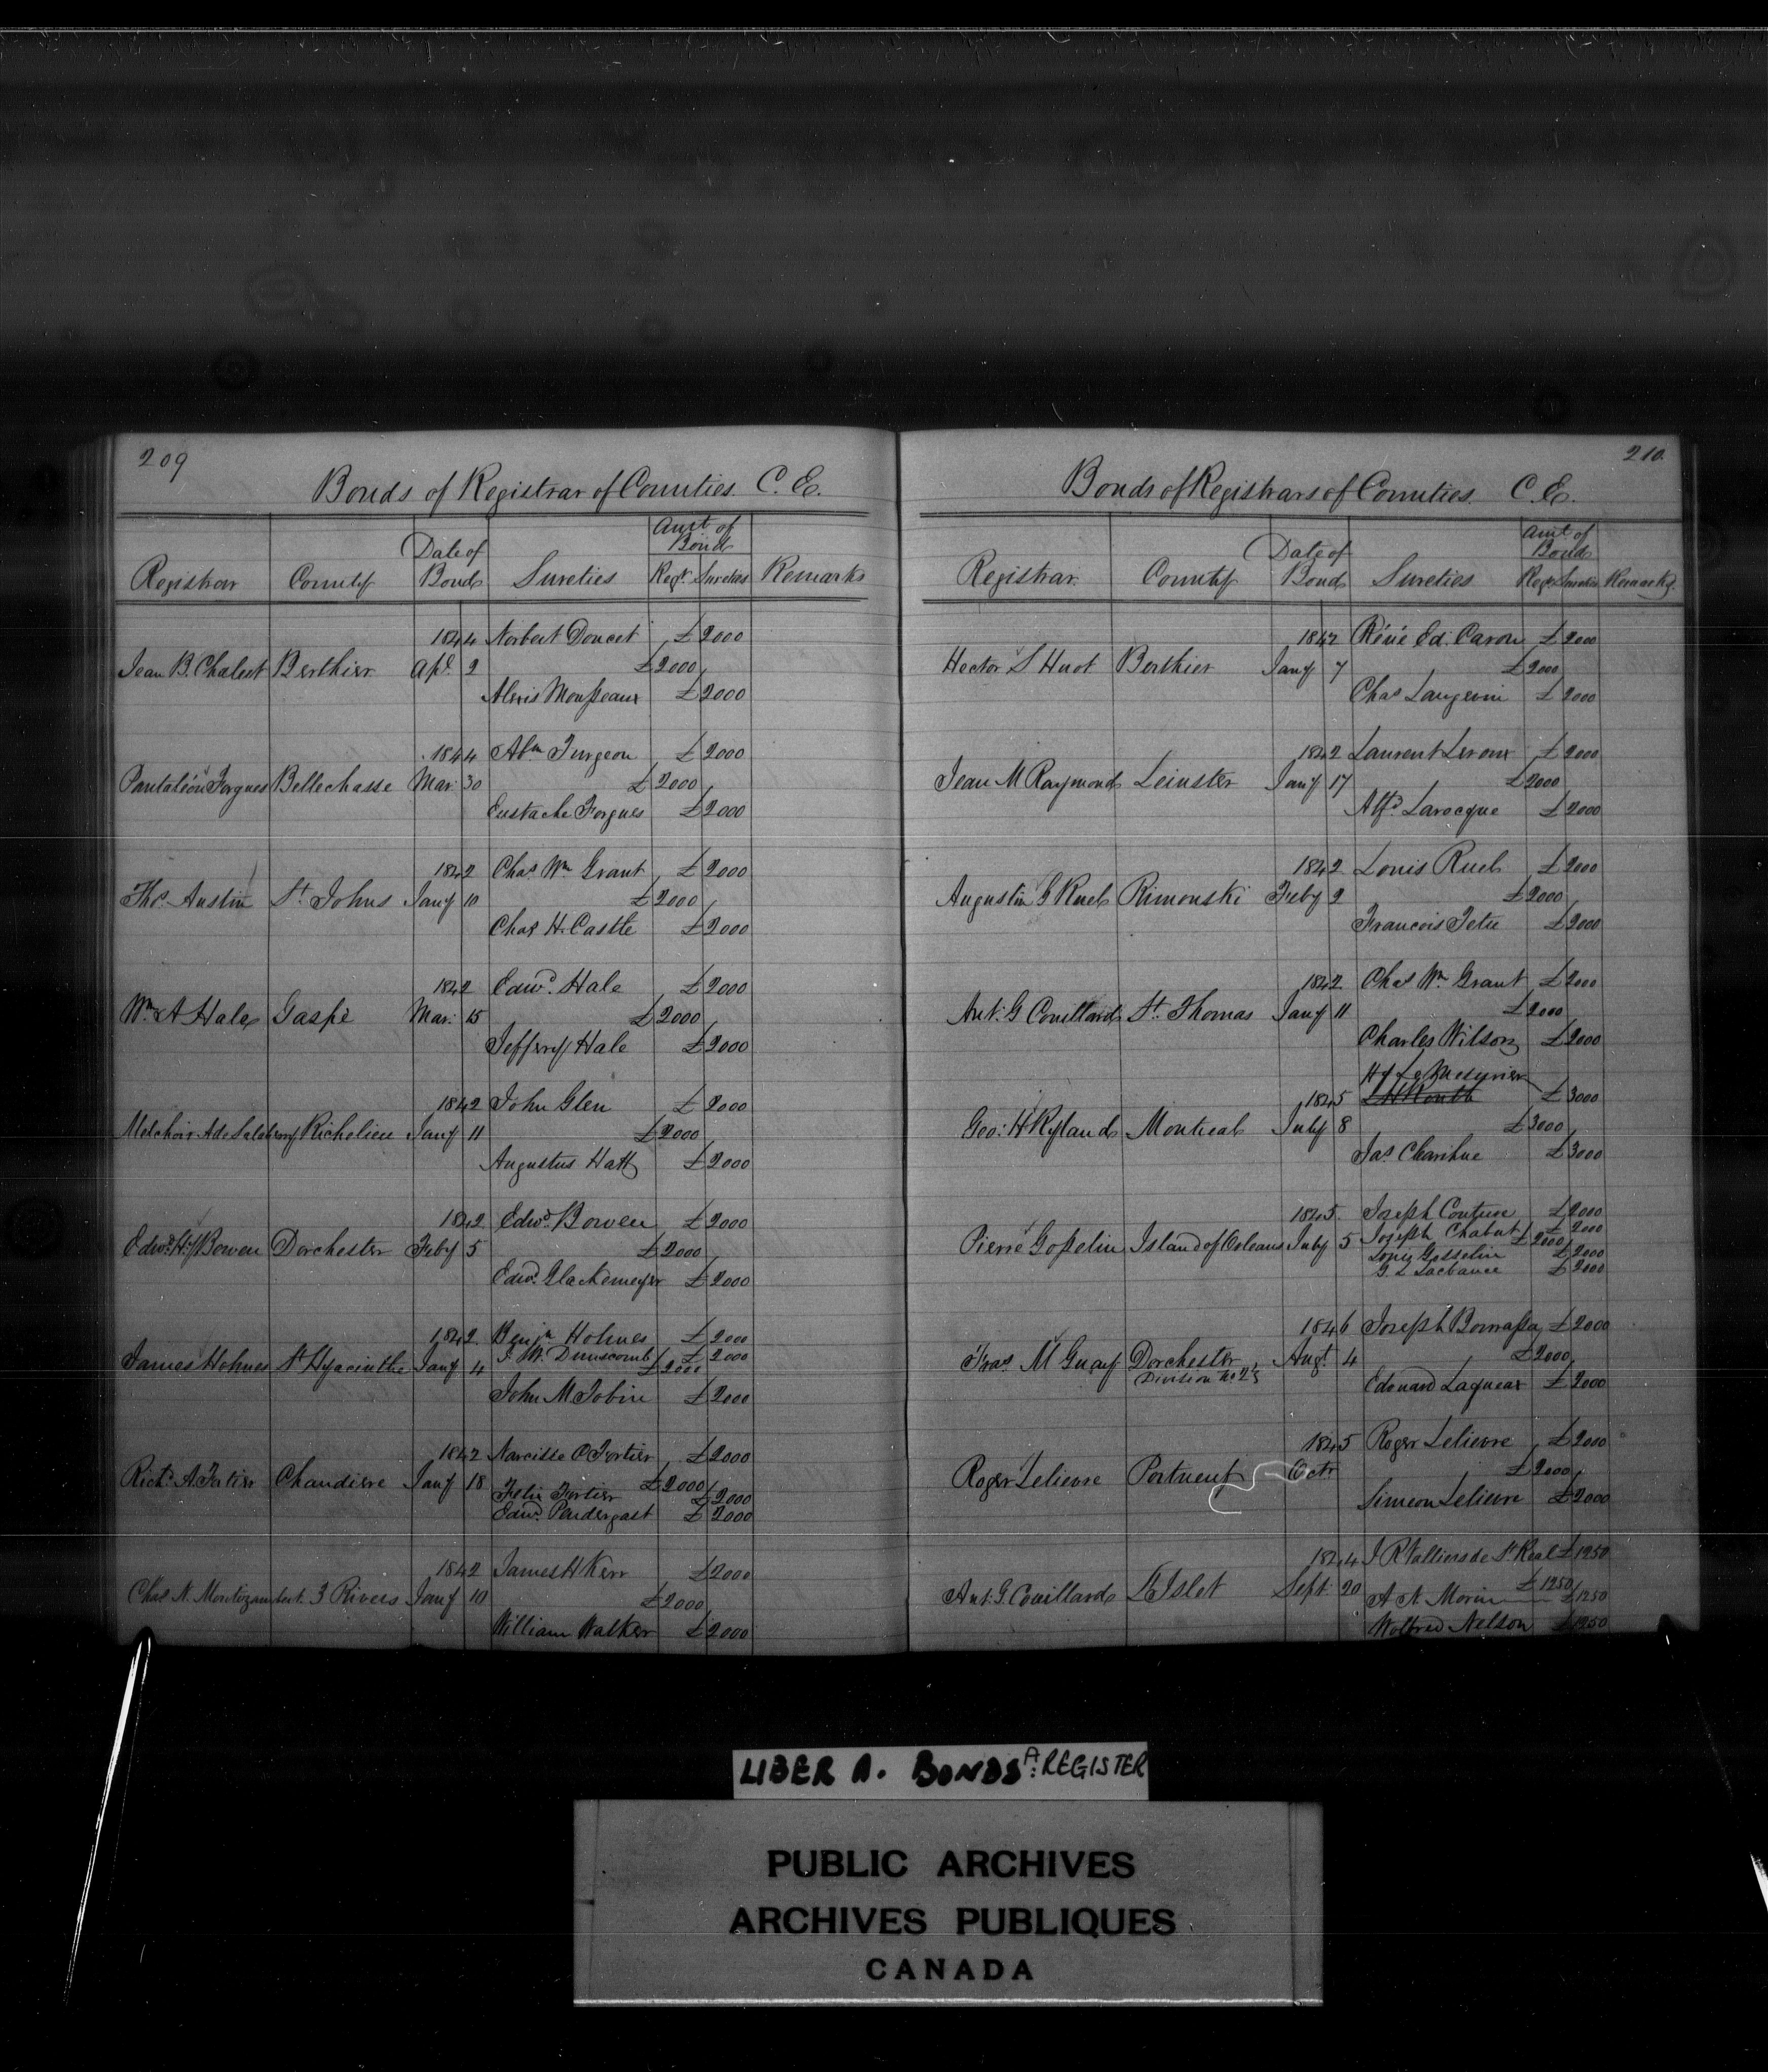 209
Bonds of Registrar of Counties. C. E.
Registrar County Date of Bond Sureties Amt of Bond Regr. Sureties Remarks
1844 Norbert Doucet £2000
Jean B. Chalut Berthier Apl. 2 £2000
Alexis Mousseaux £2000
1844 Abm Turgeon £2000
Pantaléon Forgues Bellechasse Mar: 30 £2000
Eustache Forgues £2000
1842 Chas Wm Grant £2000
Thos. Austin St. Johns Jany 10 £2000
Chas H. Castle £2000
1842 Edwd. Hale £2000
Wm A Hale Gaspé Mar: 15 £2000
Jeffery Hale £2000
1842 John Glen £2000
Melchoir A de Salaberry Richelieu Jany 11 £2000
Augustus Hatt £2000
1842 Edwd. Bowen £2000
Edwd. Hy Bowen Dorchester Feby 5 £2000
Edwd. Glackemeyer £2000
1842 Benjn Holmes £2000
J. W. Dunscomb £2000
James Holmes St Hyacinthe Jany 4 £2000
John M Tobin £2000
1842 Narcisse O Fortier £2000
Richd. A. Fortier Chaudiere Jany 18 £2000
Felix Fortier £2000
Edwd. Pendergast £2000
1842 James H Kerr £2000
Chas N. Montizambert 3 Rivers Jany 10 £2000
William Walker £2000
210
Bonds of Registrars of Counties. C. E.
Registrar. County Date of Bond Sureties Amt of Bond Regr Sureties Remarks.
1842 Réné Ed. Caron £2000
Hector S Huot Berthier Jany 7 £2000
Chas Langevin £2000
1842 Laurent Leroux £2000
Jean M Raymond Leinster Jany 17 £2000
Alfd. Larocque £2000
1842 Louis Ruel £2000
Augustin G Ruel Rimouski Feby 2 £2000
Francois Tetu £2000
1842 Chas Wm Grant £2000
Ant: G Couillard St. Thomas Jany 11 £2000
Charles Wilson £2000
H LeMesurier
1845 £3000
Geo: H Ryland Montreal July 8 £3000
Jas £3000
1845. Joseph Couture £2000
Joseph Chabot £2000
Pierre Gosselin Island of Orleans July 5 £2000
Louis Gosselin £2000
G. L Lachance £2000
1846 Joseph Bonnassa £2000
Fras M Guay Dorchester Division No 2 Augt. 4 £2000
Edouard Lagueux £2000
1845 Roger Lelievre £2000
Roger Lelievre Portneuf Octr £2000
Simeon Lelievre £2000
1844 J R Vallieres de St Real £1250
Ant: G. Couillard L'Islet Sept: 20 £1250
A N. Morin £1250
Wolfred Nelson £1250
LIBER A. BONDS A: REGISTER
PUBLIC ARCHIVES
ARCHIVES PUBLIQUES
CANADA